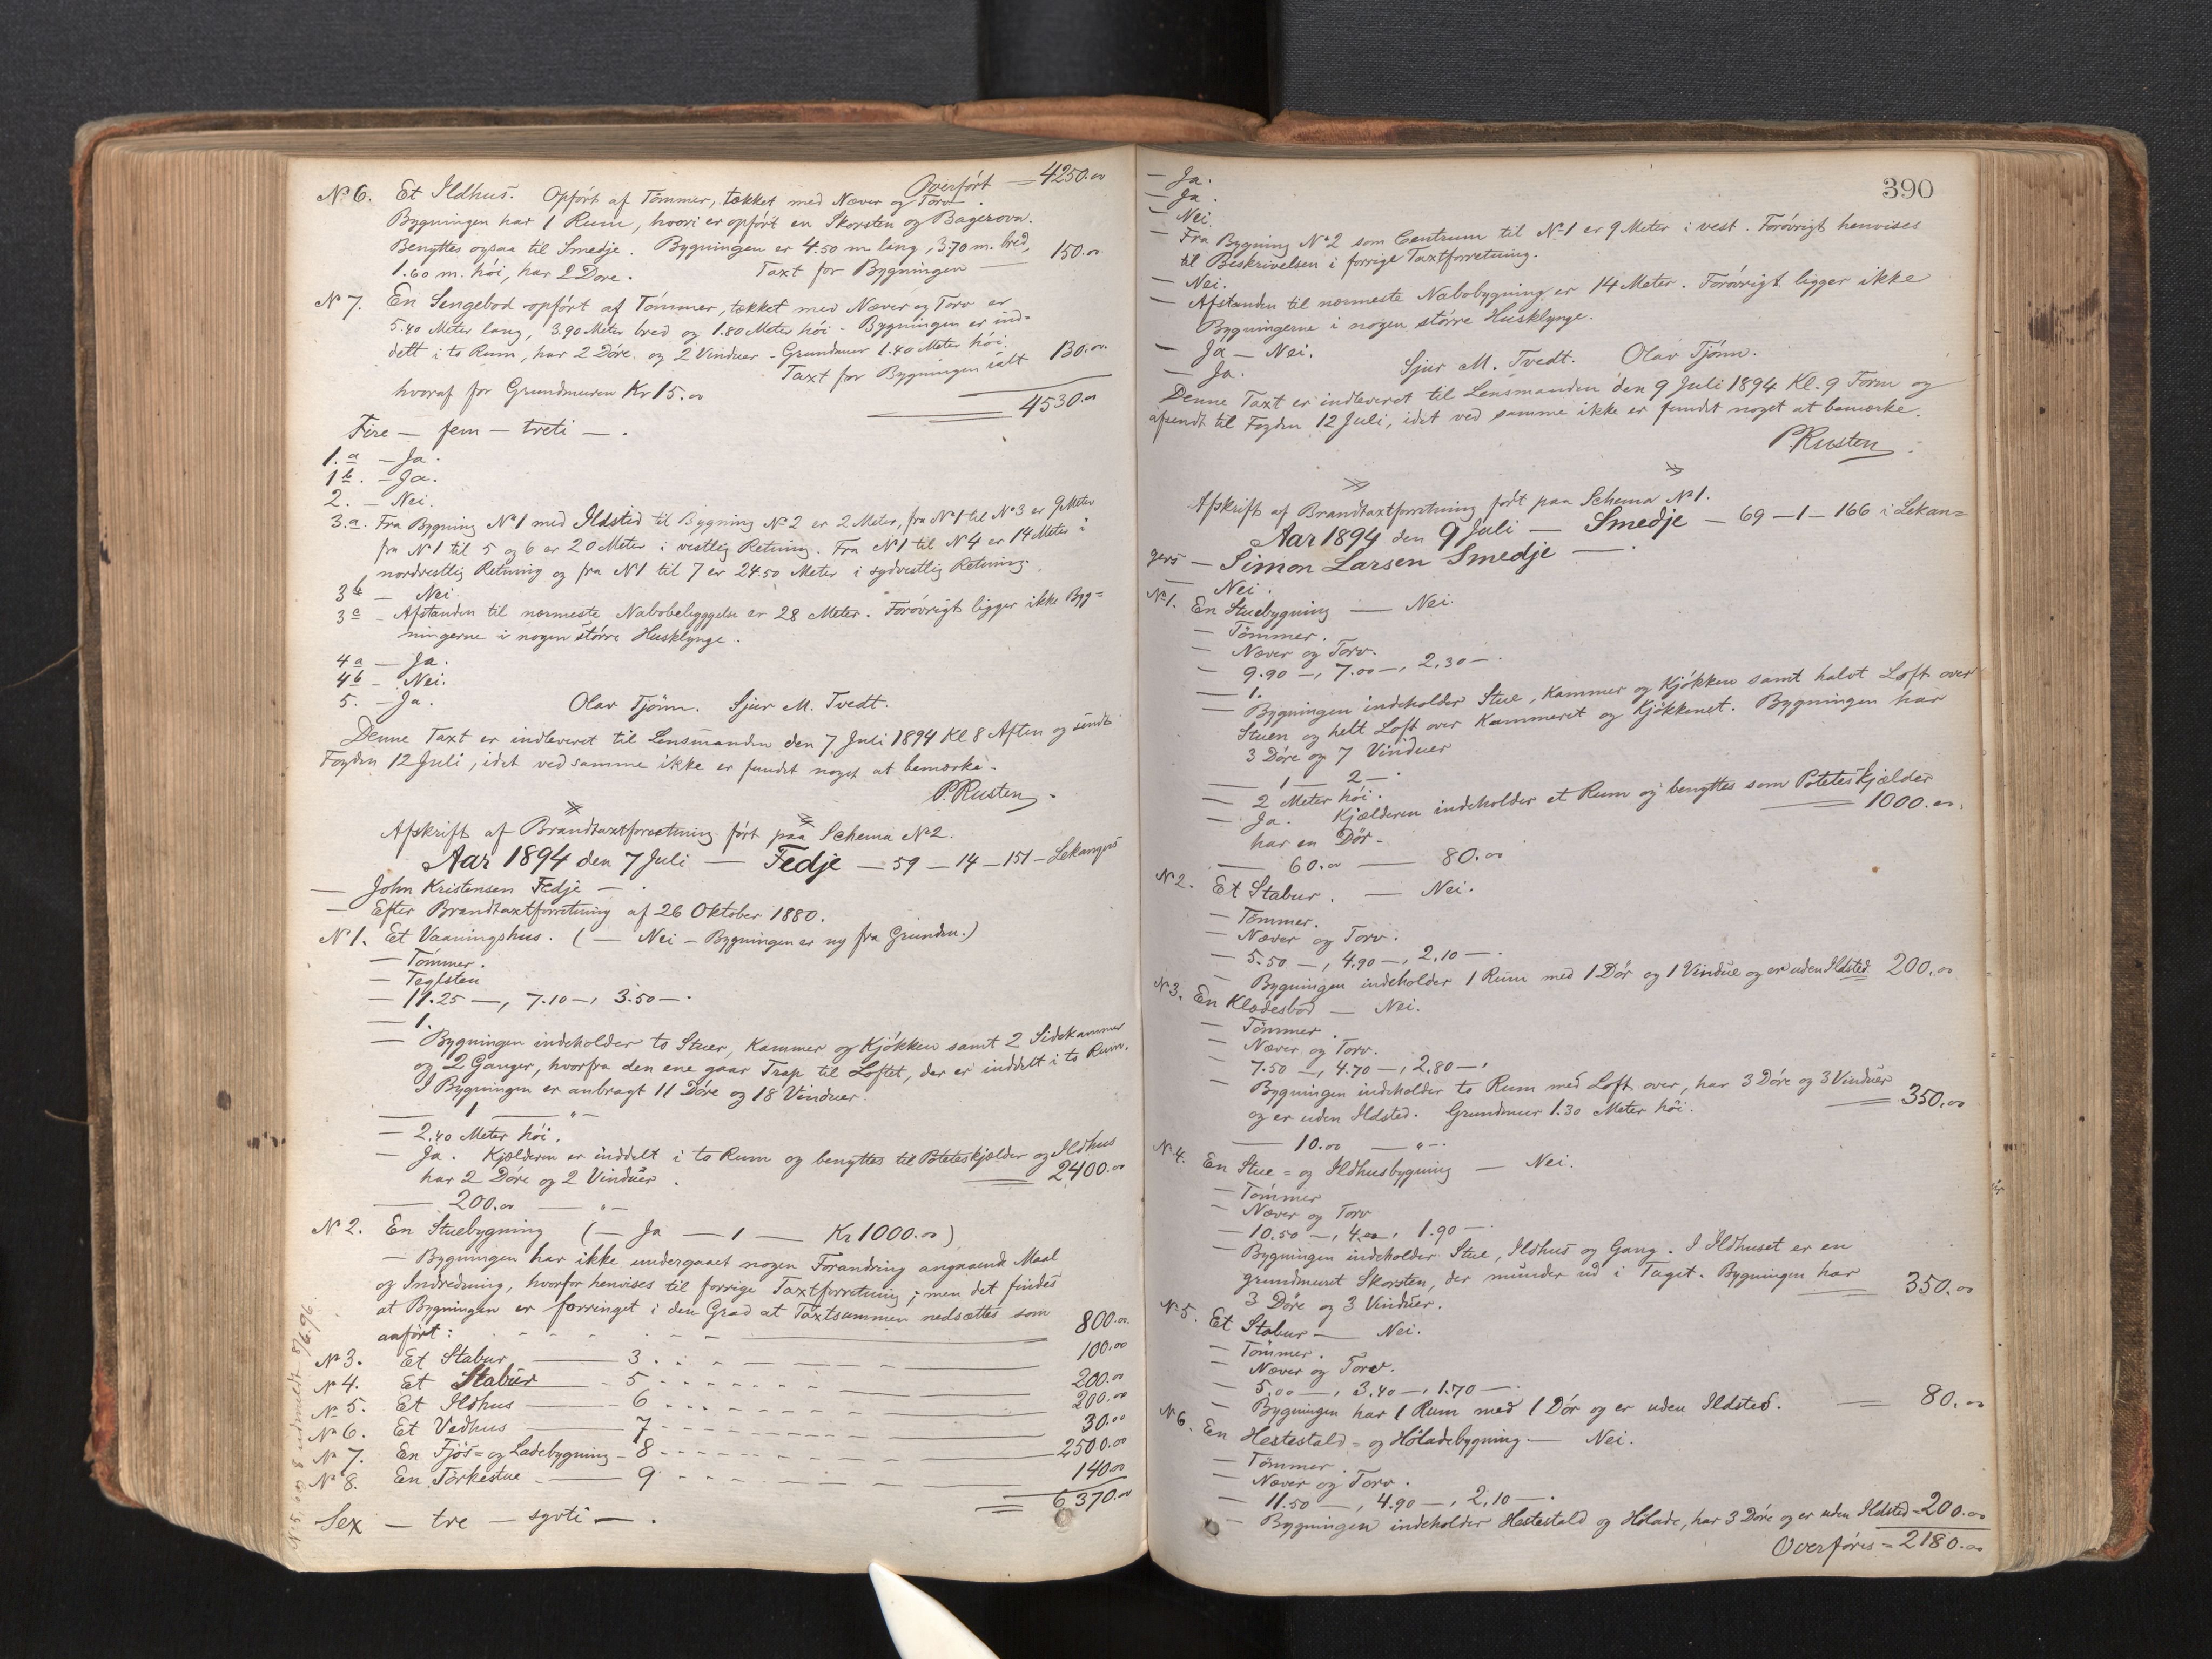 Overført — 4250.00
No 6. Et Ildhus. Opført af Tømmer, tækket med Næver og Torv.
Bygningen har 1 Rum, hvori er opført en Skorsten og Bagerovn.
Benyttes ogsaa til Smedje. Bygningen er 4.50 m lang, 3.70 m. bred,
1.60 m. høi, har 2 Døre. Taxt for Bygningen — 150.00
No 7. En Sengebod opført af Tømmer, tækket med Næver og Torv er
5.40 Meter lang, 3.90 Meter bred og 1.80 Meter høi - Bygningen er ind-
delt i to Rum, har 2 Døre og 2 Vinduer - Grundmur 1.40 Meter høi.
Taxt for Bygningen ialt 130.00
hvoraf for Grundmuren Kr 15.00
4530.00
Fire — fem — treti — .
1.a — Ja.
1b. — Ja.
2. — Nei.
3.a. Fra Bygning No 1 med Ildsted til Bygning No 2 er 2 Meter, fra No 1 til No 3 er 9 Meter
fra No 1 til 5 og 6 er 20 Meter i vestlig Retning. Fra No 1 til No 4 er 14 Meter i
nordvestlig Retning og fra No 1 til 7 er 24.50 Meter i sydvestlig Retning.
3b — Nei
3c — Afstanden til nærmeste Nabobebyggelse er 28 Meter. Forøvrigt ligger ikke Byg=
ningerne i nogen større Husklynge.
4a — Ja.
4b — Nei.
5. — Ja. Olav Tjønn. Sjur M. Tvedt.
Denne Taxt er indleveret til Lensmanden den 7 Juli 1894 Kl 8 Aften og sendt
Fogden 12 Juli, idet ved samme ikke er fundet noget at bemærke.
P. Rusten
Afskrift af Brandtaxtforretning ført paa Schema No 2.
Aar 1894 den 7 Juli — Fedje — 59 — 14 — 151 — Lekangers
— John Kristensen Fedje — .
— Efter Brandtaxtforretning af 26 Oktober 1880.
No 1. Et Vaaningshus. ( — Nei — Bygningen er ny fra Grunden.)
— Tømmer.
— Teglsten
— 11.25 —, 7.10 —, 3.50 — .
— 1.
— Bygningen indeholder to Stuer, Kammer og Kjøkken samt 2 Sidekammer
og 2 Ganger, hvorfra den ene gaar Trap til Loftet, der er inddelt i to Rum.
I Bygningen er anbragt 11 Døre og 18 Vinduer.
— 1 — " —
— 2.40 Meter høi.
— Ja. Kjælderen er inddelt i to Rum og benyttes til Poteteskjælder og Ildhus
har 2 Døre og 2 Vinduer. 2400.00
— 200.00 — " —
No 2. En Stuebygning ( — Ja — 1 — Kr 1000.00 )
— Bygningen har ikke undergaaet nogen Forandring angaaende Maal
og Indredning, hvorfor henvises til forrige Taxtforretning; men det findes
at Bygningen er forringet i den Grad at Taxtsummen nedsættes som
anført: 800.00
No 3. Et Stabur — 3 100.00
No 4. Et Stabur — 5 200.00
No 5. Et Ildhus — 6 200.00
No 6. Et Vedhus — 7 30.00
No 7. En Fjøs= og Ladebygning — 8 2500.00
No 8. En Tørkestue — 9 140.00
6370.00
Sex — tre — sytti — .
No 5, 6 og 8 udmeldt 8/6 96.
390
— Ja.
— Ja.
— Nei.
— Fra Bygning No 2 som Centrum til No 1 er 9 Meter i vest. Forøvrigt henvises
til Beskrivelsen i forrige Taxtforretning.
— Nei.
— Afstanden til nærmeste Nabobygning er 14 Meter. Forøvrigt ligger ikke
Bygningerne i nogen større Husklynge.
— Ja — Nei.
— Ja. Sjur M. Tvedt. Olav Tjønn.
Denne Taxt er indleveret til Lensmanden den 9 Juli 1894 Kl. 9 Form og
afsendt til Fogden 12 Juli, idet ved samme ikke er fundet noget at bemærke.
P. Rusten
Afskrift af Brandtaxtforretning ført paa Schema No 1.
Aar 1894 den 9 Juli — Smedje — 69 — 1 — 166 i Lekan=
gers — Simon Larsen Smedje — .
— Nei.
No 1. En Stuebygning — Nei.
— Tømmer.
— Næver og Torv.
— 9.90 —, 7.00 —, 2.30 — .
— 1.
— Bygningen indeholder Stue, Kammer og Kjøkken samt halvt Loft over
Stuen og helt Loft over Kammeret og Kjøkkenet. Bygningen har
3 Døre og 7 Vinduer
— 1 — 2 — .
— 2 Meter høi.
— Ja. Kjælderen indeholder et Rum og benyttes som Poteteskjælder
har en Dør — 1000.00
— 60.00 — 80.00
No 2. Et Stabur. — Nei.
— Tømmer.
— Næver og Torv.
— 5.50 —, 4.90 —, 2.10 — .
— Bygningen indeholder 1 Rum med 1 Dør og 1 Vindue og er uden Ildsted. 200.00
No 3. En Klædesbod — Nei.
— Tømmer.
— Næver og Torv.
— 7.50 —, 4.70 —, 2.80 — .
— Bygningen indeholder to Rum med Loft over, har 3 Døre og 3 Vinduer
og er uden Ildsted. Grundmur 1.30 Meter høi. 350.00
— 10.00 — " — .
No 4. En Stue= og Ildhusbygning — Nei.
— Tømmer
— Næver og Torv
— 10.50 —, 4.00, 1.90 — .
— Bygningen indeholder Stue, Ildhus og Gang. I Ildhuset er en
grundmuret Skorsten, der munder ud i Taget. Bygningen har
3 Døre og 3 Vinduer. 350.00
No 5. Et Stabur — Nei.
— Tømmer.
— Næver og Torv.
— 5.00 —, 3.40 —, 1.70 — .
— Bygningen har 1 Rum med 1 Dør og er uden Ildsted. 80.00
No 6. En Hestestald= og Høladebygning — Nei.
— Tømmer.
— Næver og Torv.
— 11.50 —, 4.90 —, 2.10 — .
— Bygningen indeholder Hestestald og Hølade, har 3 Døre og er uden Ildsted — 200.00
Overføres = 2180.00